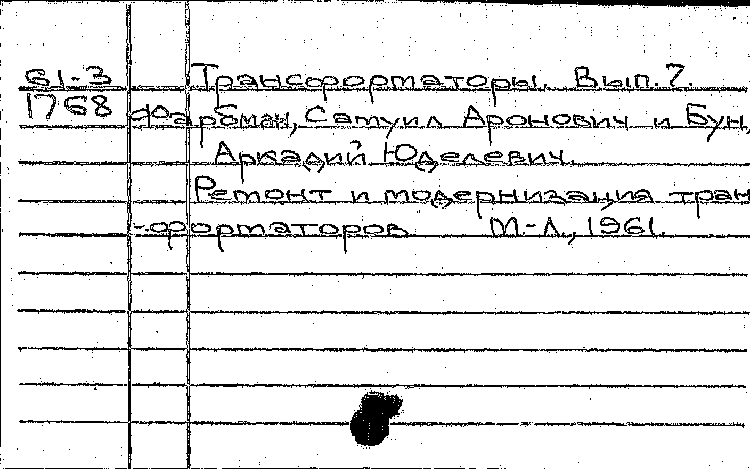 61-3 Трансформаторы. Вып. 7.
1768 Фарбман, Самуил Аронович и Бун,
Аркадий Юделевич.
Ремонт и модернизация тран
-сформаторов М.-Л., 1961.